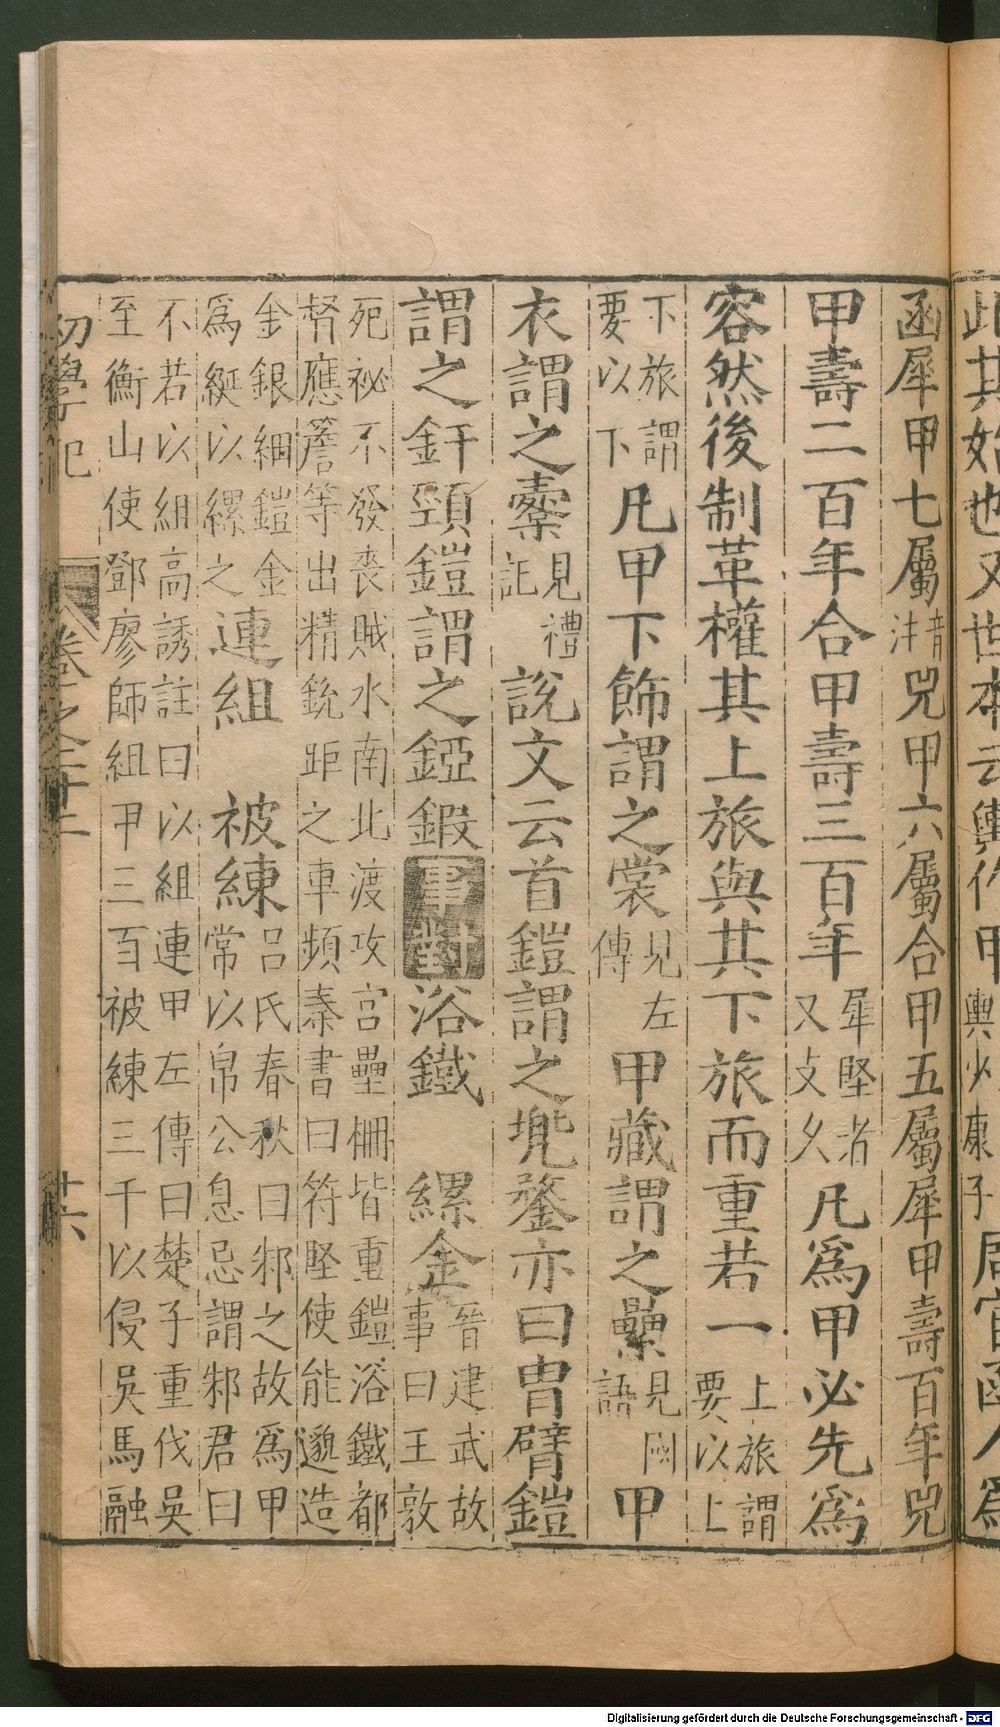 此其始也又世本云輿作甲輿少康子周官函人爲
函犀甲七屬音注兕甲六屬合甲五屬犀甲壽百年兕
甲壽二百年合甲壽三百年犀堅者又攴久凡爲甲必先爲
容然後制革權其上旅與其下旅而重若一上旅謂要以上
下旅謂要以下凡甲下飾謂之裳見左傳甲藏謂之櫜見國語甲
衣謂之櫜見禮記說文云首鎧謂之兠鍪亦曰冑臂鎧
謂之釬頸鎧謂之錏鍛事對浴鐵 縲金晉建武故事曰王敦
死祕不發喪賊水南北渡攻宫壘柵皆重鎧浴鐵都
督應詹等出精銳距之車頻秦書曰符堅使能邈造
金銀綱鎧金
爲綖以縲之連組 被練吕氏春秋曰邾之故爲甲
常以帛公息忌謂邾君曰
不若以組高誘註曰以組連甲左傳曰楚子重伐吳
至衡山使鄧廖師組甲三百被練三千以侵吳馬融
初學記 卷之二十二 廿六
Digitalisierung gefördert durch die Deutsche Forschungsgemeinschaft - DFG